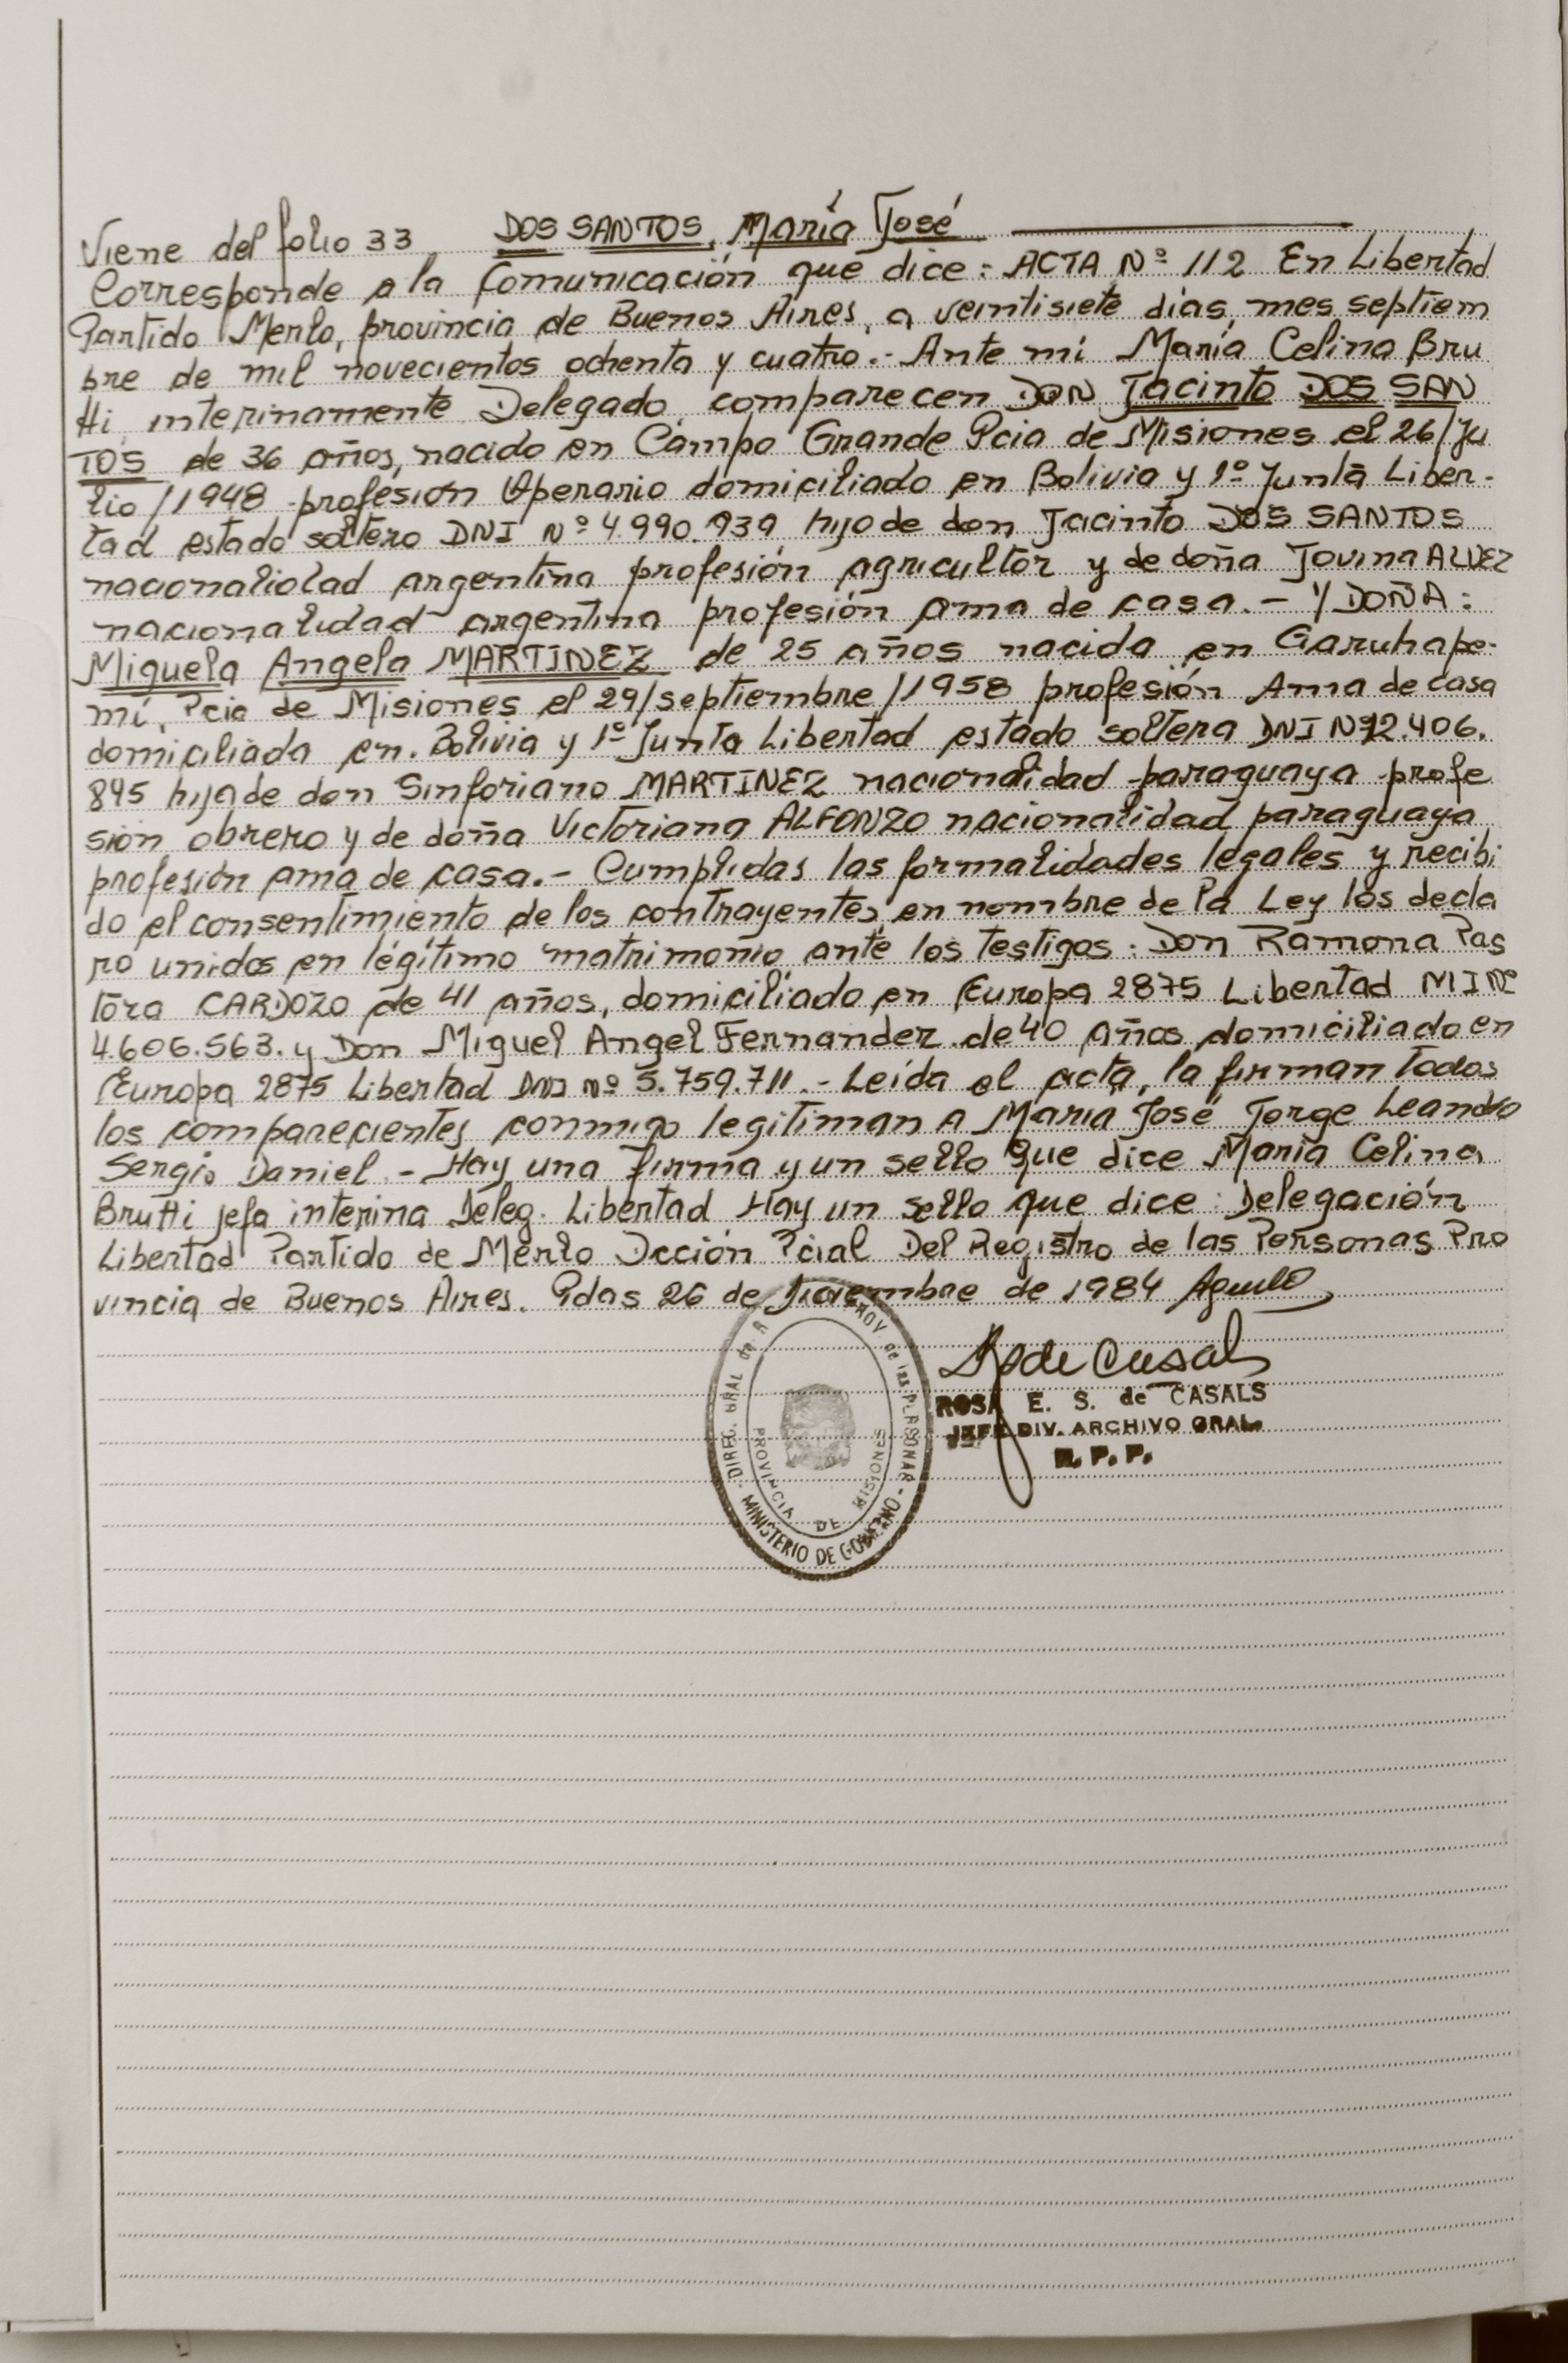 Viene del folio 33 DOS SANTOS, María José
Corresponde a la Comunicación que dice: ACTA Nº 112 En Libertad
Partido Merlo, provincia de Buenos Aires, a veintisiete días, mes septiem
bre de mil novecientos ochenta y cuatro.- Ante mí María Celina Bru
tti interinamente Delegado comparecen DON Jacinto DOS SAN
TOS de 36 años, nacido en Campo Grande Pcia de Misiones el 26/Ju
lio/1948 profesión Operario domiciliado en Bolivia y 1º Junta Liber-
tad estado soltero DNI Nº 4.990.939 hijo de don Jacinto DOS SANTOS
nacionalidad argentina profesión agricultor y de doña Jovina ALVEZ
nacionalidad argentina profesión ama de casa.- Y DOÑA:
Miguela Angela MARTINEZ de 25 años nacida en Garuhape-
mí, Pcia de Misiones el 29/septiembre/1958 profesión Ama de casa
domiciliada en Bolivia y 1º Junta Libertad estado soltera DNI Nº 12.406.
845 hija de don Sinforiano MARTINEZ nacionalidad paraguaya profe
sión obrero y de doña Victoriana ALFONZO nacionalidad paraguaya
profesión ama de casa.- Cumplidas las formalidades legales y recibi
do el consentimiento de los contrayentes en nombre de la Ley los decla
ro unidos en légítimo matrimonio ante los testigos: Don Ramona Pas
tora CARDOZO de 41 años, domiciliado en Europa 2875 Libertad MI Nº
4.606.563. y Don Miguel Angel Fernandez de 40 años domiciliado en
Europa 2875 Libertad DNI nº 5.759.711.- Leída el acta, la firman todos
los comparecientes conmigo legitiman a María José Jorge Leandro
Sergio Daniel.- Hay una firma y un sello que dice María Celina
Brutti jefa interina Deleg. Libertad Hay un sello que dice: Delegación
Libertad Partido de Merlo Dcción Pcial Del Registro de las Personas Pro
vincia de Buenos Aires. Pdas 26 de Noviembre de 1984
ROSA E. S. de CASALS
JEFE DIV. ARCHIVO GRAL.
R. P. P.
DIREC. GRAL de PROV. de las PERSONAS
PROVINCIA DE MISIONES
MINISTERIO DE GOBIERNO